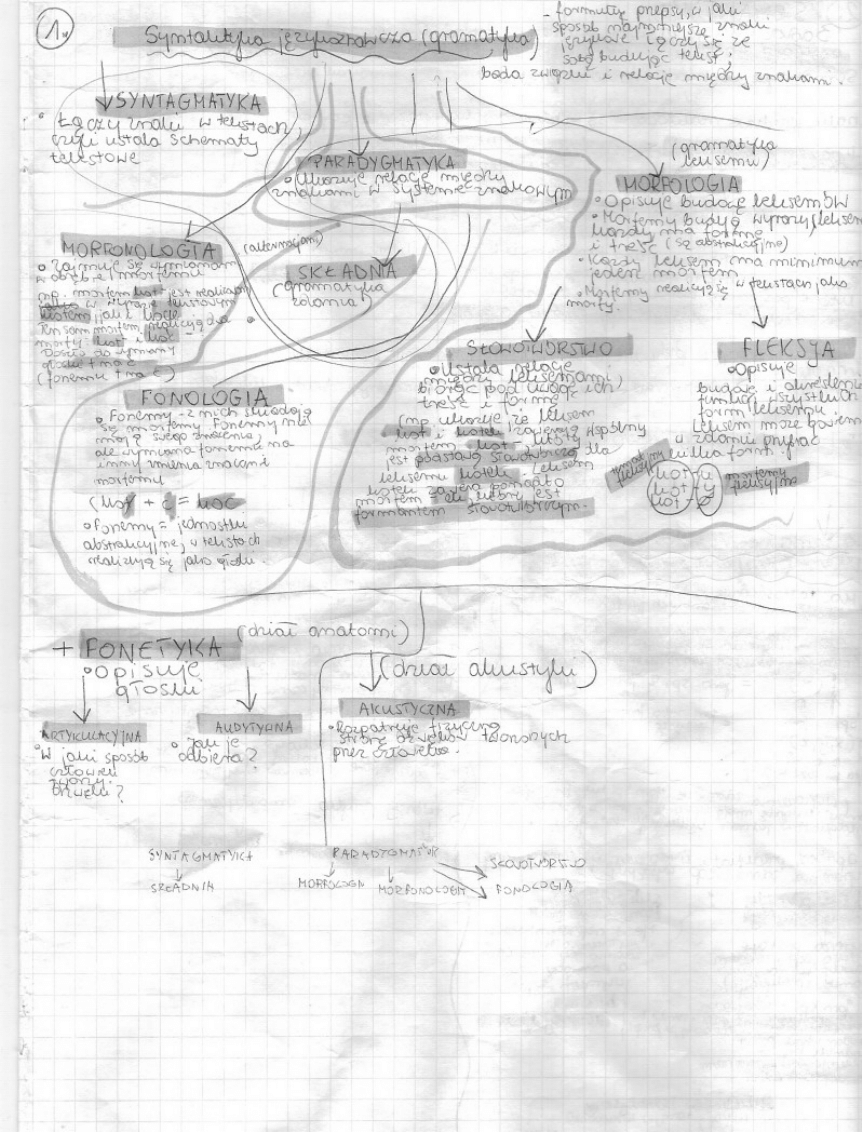 1.
Syntaktyka językoznawcza (gramatyka)
- formułuje przepisy, w jaki
sposób najmniejsze znaki
językowe łączy się ze
sobą budując tekst;
bada związki i relacje między znakami.
SYNTAGMATYKA
Łączy znaki w tekstach,
czyli ustala schematy
tekstowe
PARADYGMATYKA
Ukazuje relacje między
znakami w systemie znakowym
(gramatyka
leksemu)
MORFOLOGIA
Opisuje budowę leksemów
Morfemy budują wyrazy/leksemy
każdy ma formę
i treść (są abstrakcyjne)
Każdy leksem ma minimum
jeden morfem
Morfemy realizują się w tekstach jako
morfy.
MORFONOLOGIA (alternacjami)
Zajmuje się wymianami
w obrębie morfemu
np. morfem kot jest realizowany
w wyrazie tekstowym
kotem jak i kocie
Ten sam morfem realizują dwa
morfy: kot i koć
Doszło do wymiany
głoski t na ć
(fonemu t na ć)
SKŁADNIA
(gramatyka
zdania)
SŁOWOTWÓRSTWO
Ustala relacje
między leksemami
biorąc pod uwagę ich
treść i formę
(np. ukazuje, że leksem
kot i kotek zawierają wspólny
morfem kot, który
jest podstawą słowotwórczą dla
leksemu kotek. Leksem
kotek zawiera ponadto
morfem -ek, który jest
formantem słowotwórczym.
FLEKSJA
Opisuje
budowę i określenie
funkcji wszystkich
form leksemu.
Leksem może bowiem
w zdaniu przybrać
kilka form.
temat fleksyjny
kot-u
kot-y
kot-
morfemy
fleksyjne
FONOLOGIA
Fonemy - z nich składają
się morfemy. Fonemy nie
mają swego znaczenia,
ale wymiana fonemu na
inny zmienia znaczenie
morfemu
(kot + ć = koć
Fonemy = jednostki
abstrakcyjne, w tekstach
realizują się jako głoski.
+ FONETYKA (dział anatomi)
Opisuje
głoski
(dział akustyki)
ARTYKULACYJNA
W jaki sposób
człowiek
tworzy
dźwięki?
AUDYTYWNA
Jak je
odbiera?
AKUSTYCZNA
Rozpatruje fizyczną
stronę dźwięków tworzonych
przez człowieka.
SYNTAGMATYKA
SKŁADNIA
PARADYGMATYK
MORFOLOGIA
MORFONOLOGIA
SŁOWOTWÓRSTWO
FONOLOGIA